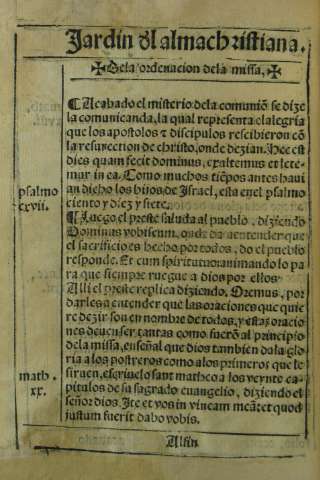 Jardin dl alma christiana.
✠ Dela ordenacion dela missa. ✠
¶ Acabado el misterio dela comuniõ se dize
la comunicanda, la qual representa el alegria
que los apostolos ⁊ discipulos rescibieron cõ
la resurection de christo, onde dezian. Hec est
dies quam fecit dominus, exaltemus et lete-
mur in ea. Como muchos tiẽpos antes havi
an dicho los hijos de Israel, esta en el psalmo
ciento y diez y siete.
psalmo
cxvii.
¶ Luego el preste saluda al pueblo, diziendo
Dominus vobiscum. onde da a entender que
el sacrificio es hecho por todos, do el pueblo
responde. Et cum spiritu tuo: animando lo pa
ra que siempre ruegue a dios por ellos.
Alli el preste replica diziendo. Oremus, por
darles a entender que las oraciones que quie
re dezir son en nombre de todos, y estas oracio
nes deuen ser tantas como fuerõ al principio
dela missa, en señal que dios tambien da la glo
ria a los postreros como a los primeros que le
siruen, escriuelo sant matheo a los veynte ca-
pitulos de su sagrado euangelio, diziendo el
señor dios. Ite et vos in vineam meã: et quod
justum fuerit dabo vobis.
math.
xx.
Alfin